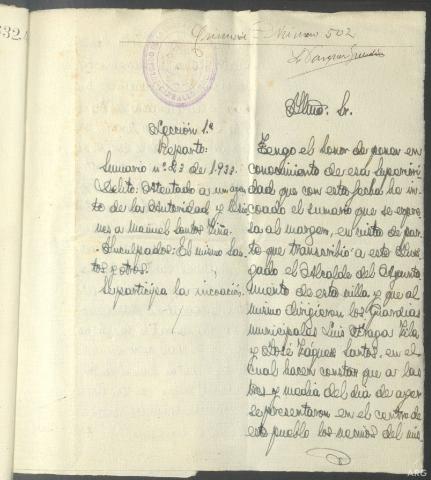 Número 502
Illmo. Sr.
Sección 1ª
Reparto:
Sumario nº 83 de 1.932.
Delito: Atentado a un agen
to de la Autoridad y lesio
nes a Manuel Santos Viña.
Inculpados: El mismo San
tos y otros.
Se participa la incoación.
Tengo el honor de poner en
conocimiento de esa Superiori
dad que con esta fecha he in
coado el sumario que se expre
sa al margen, en vista de par
te que transcribió a este Juz
gado el Alcalde del Ayunta
miento de esta villa y que al
mismo dirigieron los Guardias
municipales Luis Fraga Vila
y José Vázquez Santos, en el
cual hacen constar que a las
tres y media del día de ayer
se presentaron en el centro de
este pueblo los vecinos del mis
ARG